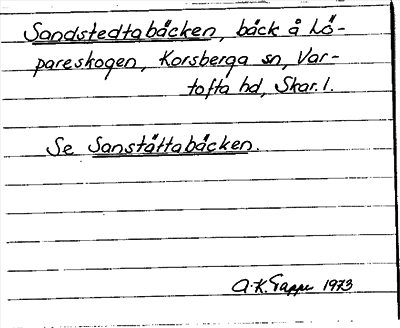 Sandstedtabäcken, bäck å Lö-
pareskogen, Korsberga sn, Var-
tofta hd, Skar. l.
Se Sanståttabäcken.
A.K. Tappe 1973